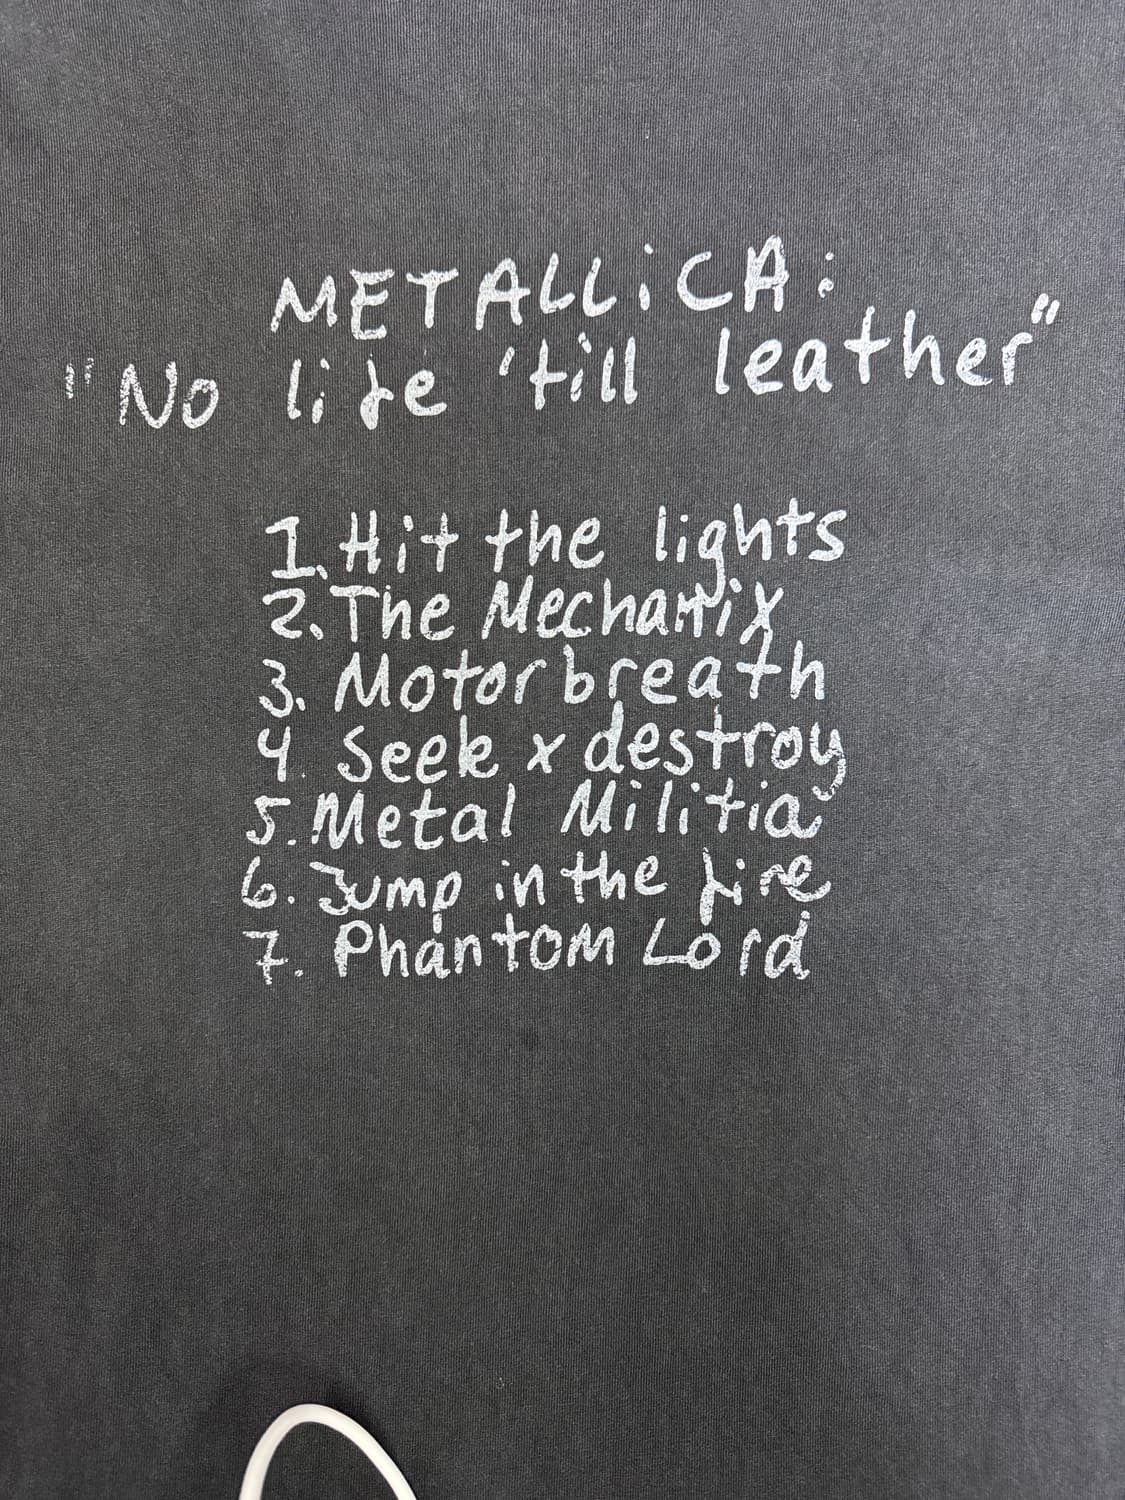 METALLiCA:
"No life 'till leather"
1. Hit the lights
2. The Mechanix
3. Motorbreath
4. Seek x destroy
5. Metal Militia
6. Jump in the fire
7. Phantom Lord